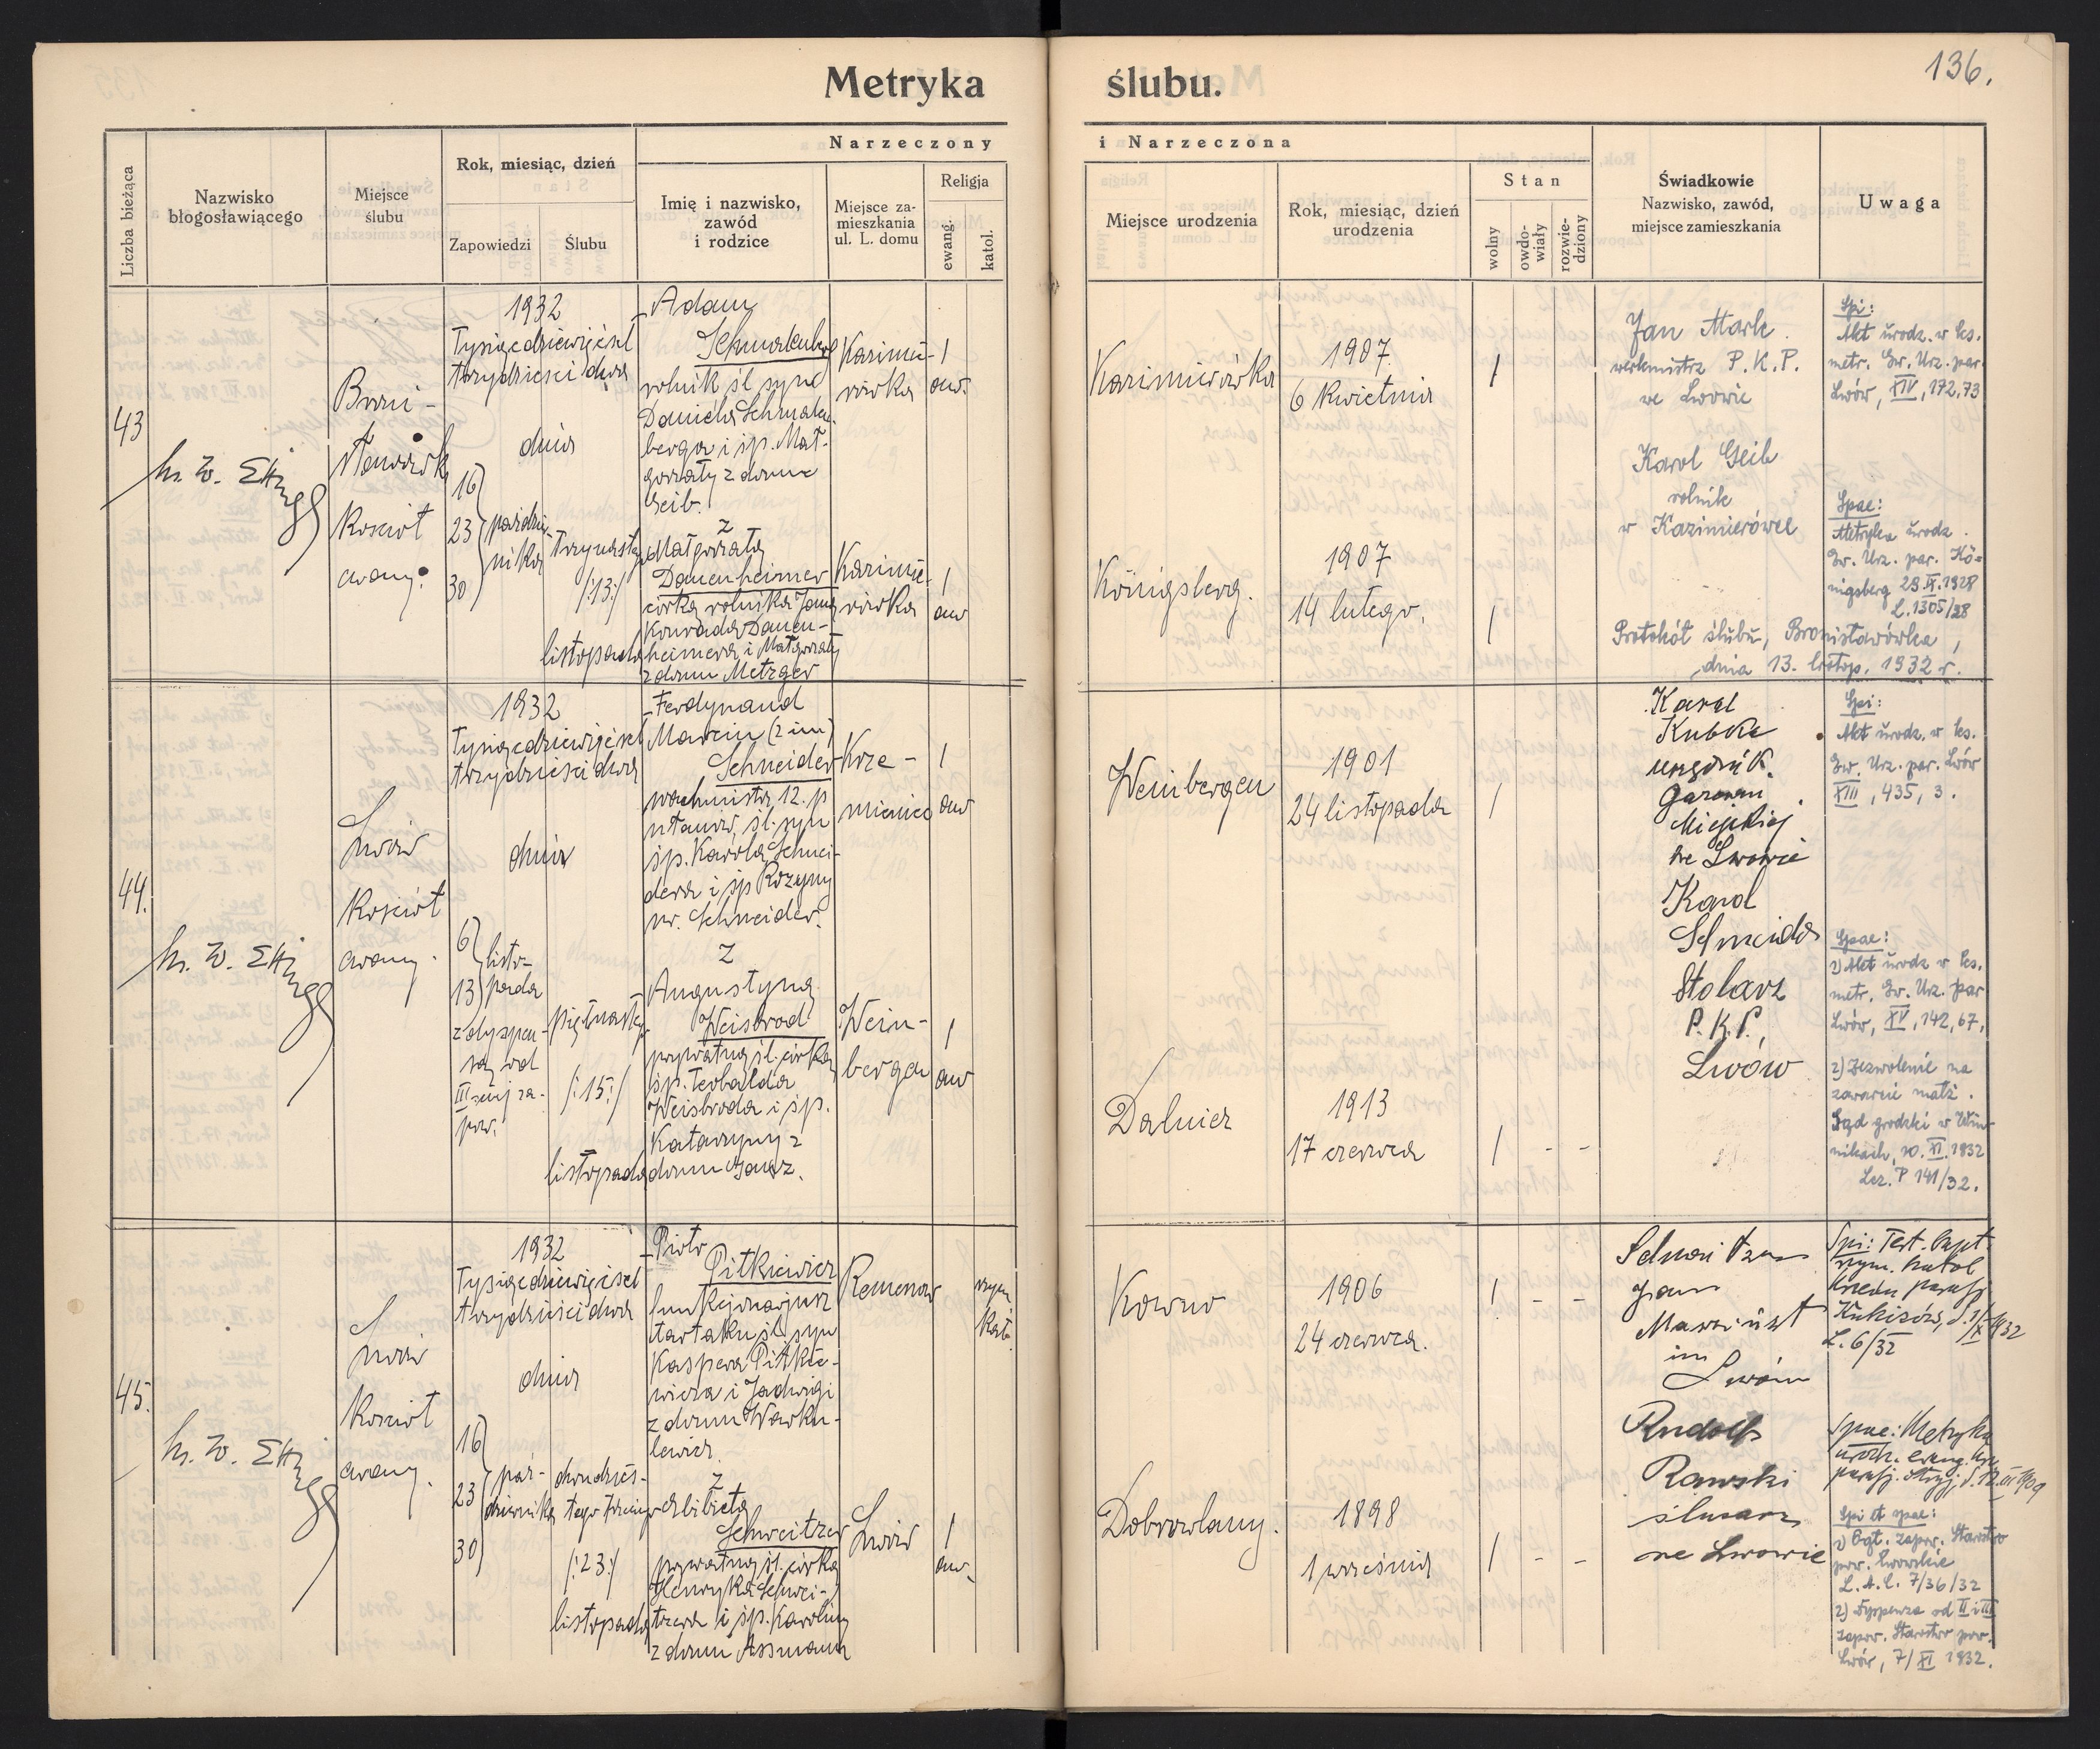 Metryka ślubu.
136.
Liczba bieżąca
Nazwisko
błogosławiącego
Miejsce
ślubu
Rok, miesiąc, dzień
Zapowiedzi
Ślubu
Narzeczony
Imię i nazwisko,
zawód
i rodzice
Miejsce za-
mieszkania
ul. L. domu
Religja
ewang.
katol.
i Narzeczona
Miejsce urodzenia
Rok, miesiąc, dzień
urodzenia
Stan
wolny
owdo-
wiały
rozwie-
dziony
Świadkowie
Nazwisko, zawód,
miejsce zamieszkania
Uwaga
43
Broni-
sławówk
Kościół
ewang.
1932
Tysiącdziewięćset
trzydzieści dwa
dnia
16
23
30
paździ-
nika
trzynasty
/:13:/
listopada
Adam
Schmalenberg
rolnik śl. syn
Daniela Schmalen-
berga i śp. Mał-
gorzaty z domu
Geib.
z
Małgorzatą
Danenheimer
córką rolnika Jana
Konrada Danen-
heimera i Małgorzaty
z domu Metzger
Kazimie-
rówka
1
aw.
Kazimie-
rówka
1
aw
Kazimierówka
1907
6 kwietnia
1
Königsberg.
1907
14 lutego.
1
Jan Mark
werkmistrz P. K. P.
we Lwowie
Karol Geib
rolnik
w Kazimierówce
Spi:
Akt urodz. w ks.
metr. Ew. Urz. par.
Lwów, XIV, 172, 73
Spae:
Metryka urodz.
Ew. Urz. par. Kö-
nigsberg 29.IX.1928
L. 1305/28
Protokół ślubu, Bronisławówka,
dnia 13. listop. 1932 r.
44.
Lwów
Kościół
ewang.
1932
Tysiącdziewięćset
trzydzieści dwa
dnia
6
13
listo-
pada
z dyspen-
są od
III-ciej za-
pow.
piętnasty
/:15:/
listopada
Ferdynand
Marcin (2 im)
Schneider
wachmistrz 12. p
ułanów, śl. syn
śp. Karola Schnei-
dera i śp Rozyny
ur. Schneider.
z
Augustyną
Weisbrod
prywatną śl. córką
śp. Teobalda
Weisbroda i śp.
Katarzyny z
domu
Krze-
mieniec
1
aw
Wein-
bergen
1
aw
Weinbergen
1901
24 listopada
1
Dalnicz
1913
17 czerwca
1 - -
Karol
Kubke
urzędnik.
Gazowni
Miejskiej
we Lwowie
Karol
Schneider
Stolarz
P. K. P.
Lwów
Spi:
Akt urodz. w ks.
Ew. Urz. par. Lwów
XIII, 435, 3.
Spae:
1) Akt urodz w ks.
metr. Ew. Urz. par
Lwów, XV, 142, 67,
2) Zezwolenie na
zawarcie małż.
Sąd grodzki w Win-
nikach, 10. XI. 1932
Lcz. P 141/32.
45.
Lwów
Kościół
ewang.
1932
Tysiącdziewięćset
trzydzieści dwa
dnia
16
23
30
paź-
dziernika
dwudzies-
tego trzeciego
/:23:/
listopada
Piotr
Pitkiewicz
funkcjonarjusz
tartaku śl. syn
Kaspra Pitkie-
wicza i Jadwigi
z domu Warku-
lewicz.
z
Elżbietą
Schweitzer
prywatną śl. córką
Henryka Schwei-
tzera i śp. Karoliny
z domu Assmann
Remenów
rzym
kat.
Lwów
1
aw.
Kowno
1906
24 czerwca.
1 - -
Dobrowlany.
1898
1 września
1 - -
Schweitzer
Jan
Lwów
Rudolf
Rawski
ślusarz
we Lwowie
Spi: Test. bapt.
rzym. katol
Urzędu parafj
Kukizów, d. 1/X 1932
L. 6/32
Spae: Metryka
urodz. ewang. Urz.
parafj. Stryj,
Spi et spae:
1) Ogł. zapow. Starostwo
pow. Lwowskie
L. A. C. 7/36/32
2) Dyspenza od II i III
zapow. Starostwo pow.
Lwów, 7/XI 1932.